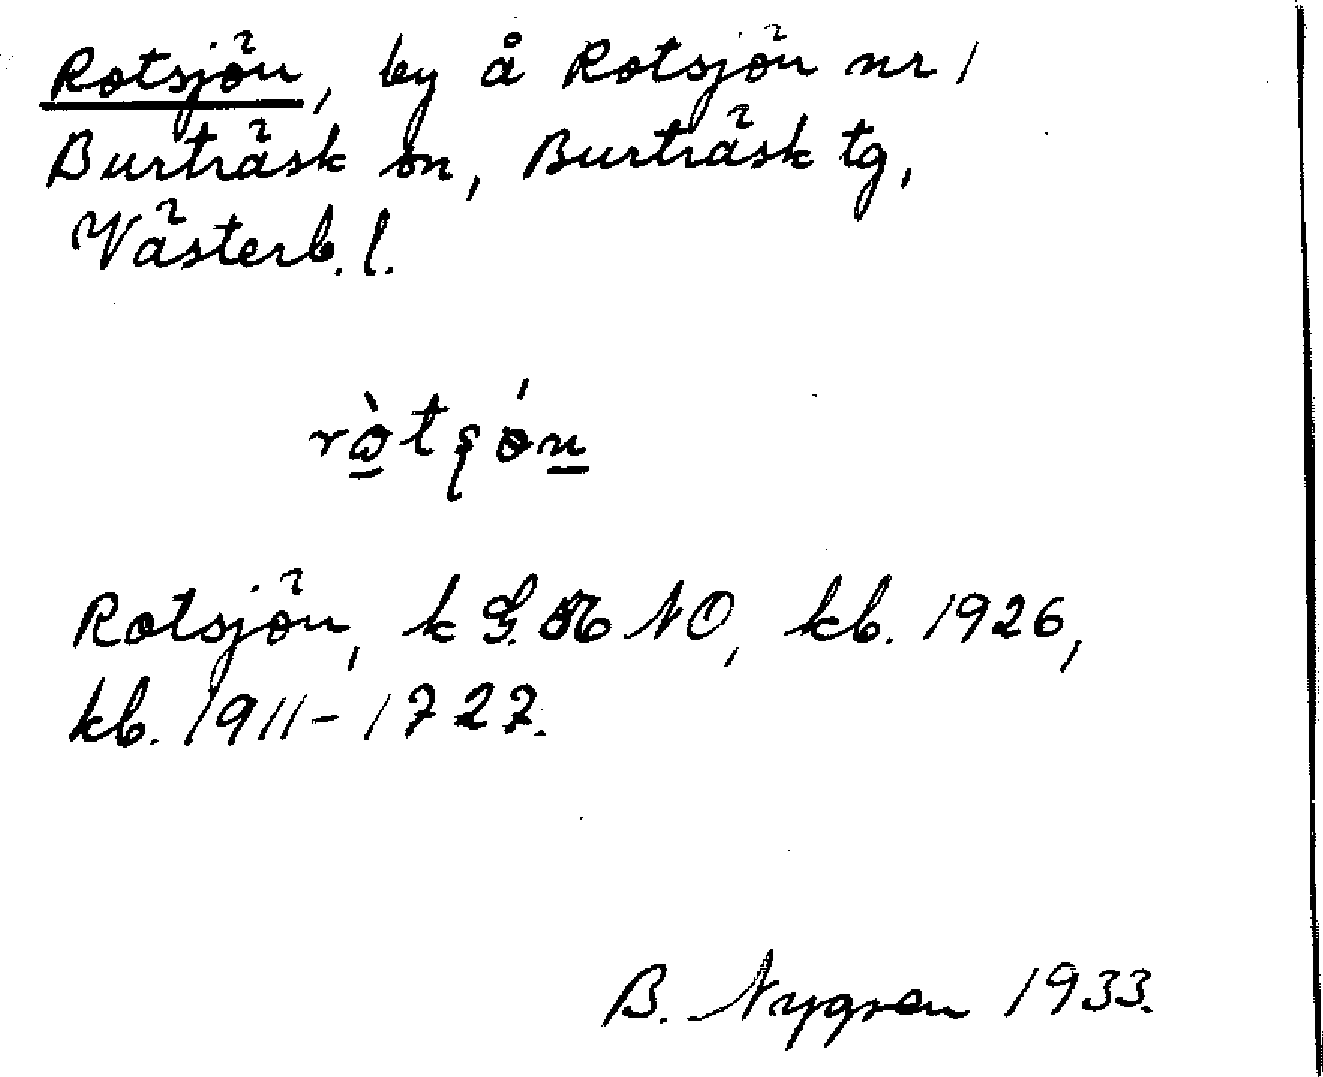 Rotsjön, by å Rotsjön nr 1
Burträsk sn, Burträsk tg,
Västerb. l.
Rotsjön, k G. 56 NO, kb. 1926,
kb. 1911-1727.
B. Nygren 1933.